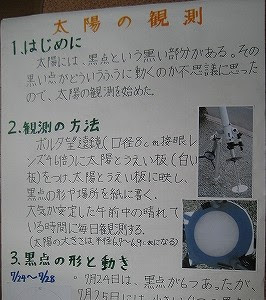 太陽の観測
1.はじめに
太陽には、黒点という黒い部分がある。その
黒い点がどういうふうに動くのか不思議に思った
ので、太陽の観測を始めた。
2.観測の方法
ポルタ望遠鏡(口径8cm接眼レ
ンズ46倍)に太陽とうえい板(白い
板)をつけ、太陽とうえい板に映し、
黒点の形や場所を紙に書く。
天気が安定した午前中の晴れて
いる時間に毎日観測する。
(太陽の大きさは、半径6.7~6.9cmになる)
3.黒点の形と動き
7/24~7/28
7月24日は、黒点が6つあったが、
7月25日には